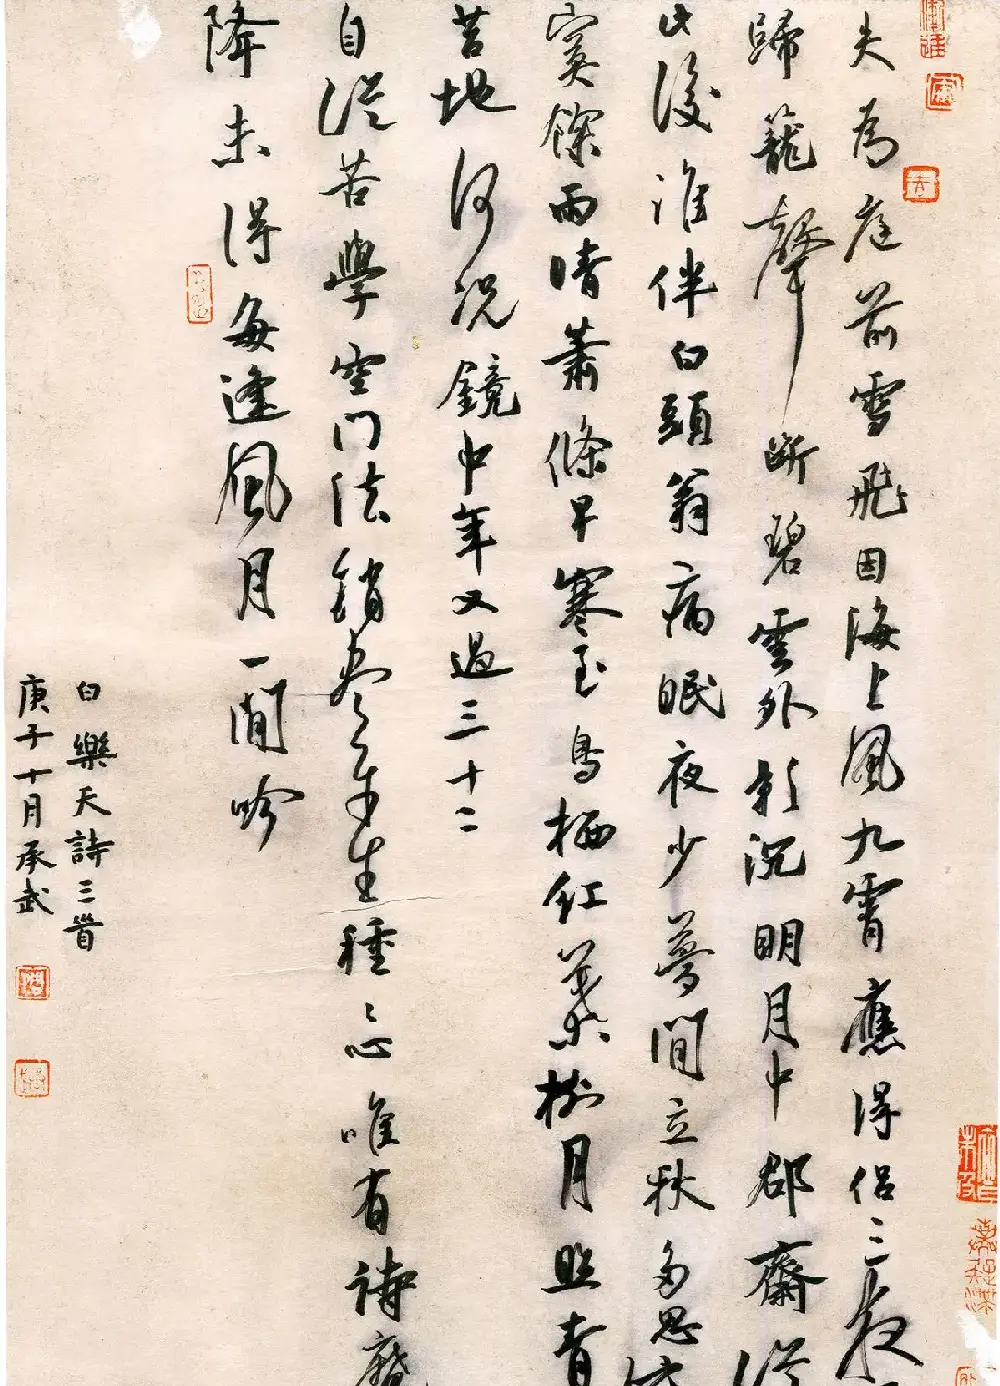 失為庭前雪飛因海上風九霄應得侶三夜
歸籠聲斷碧雲外影沉明月中郡齋從
此後誰伴白頭翁病眠夜少夢閒立秋多思
寞餘雨晴蕭條早寒至鳥栖紅葉樹月照青
苔地何況鏡中年又過三十二
自從苦學空門法銷盡平生種〻心唯有詩魔
降未得每逢風月一閒吟
白樂天詩三首
庚子十月承武